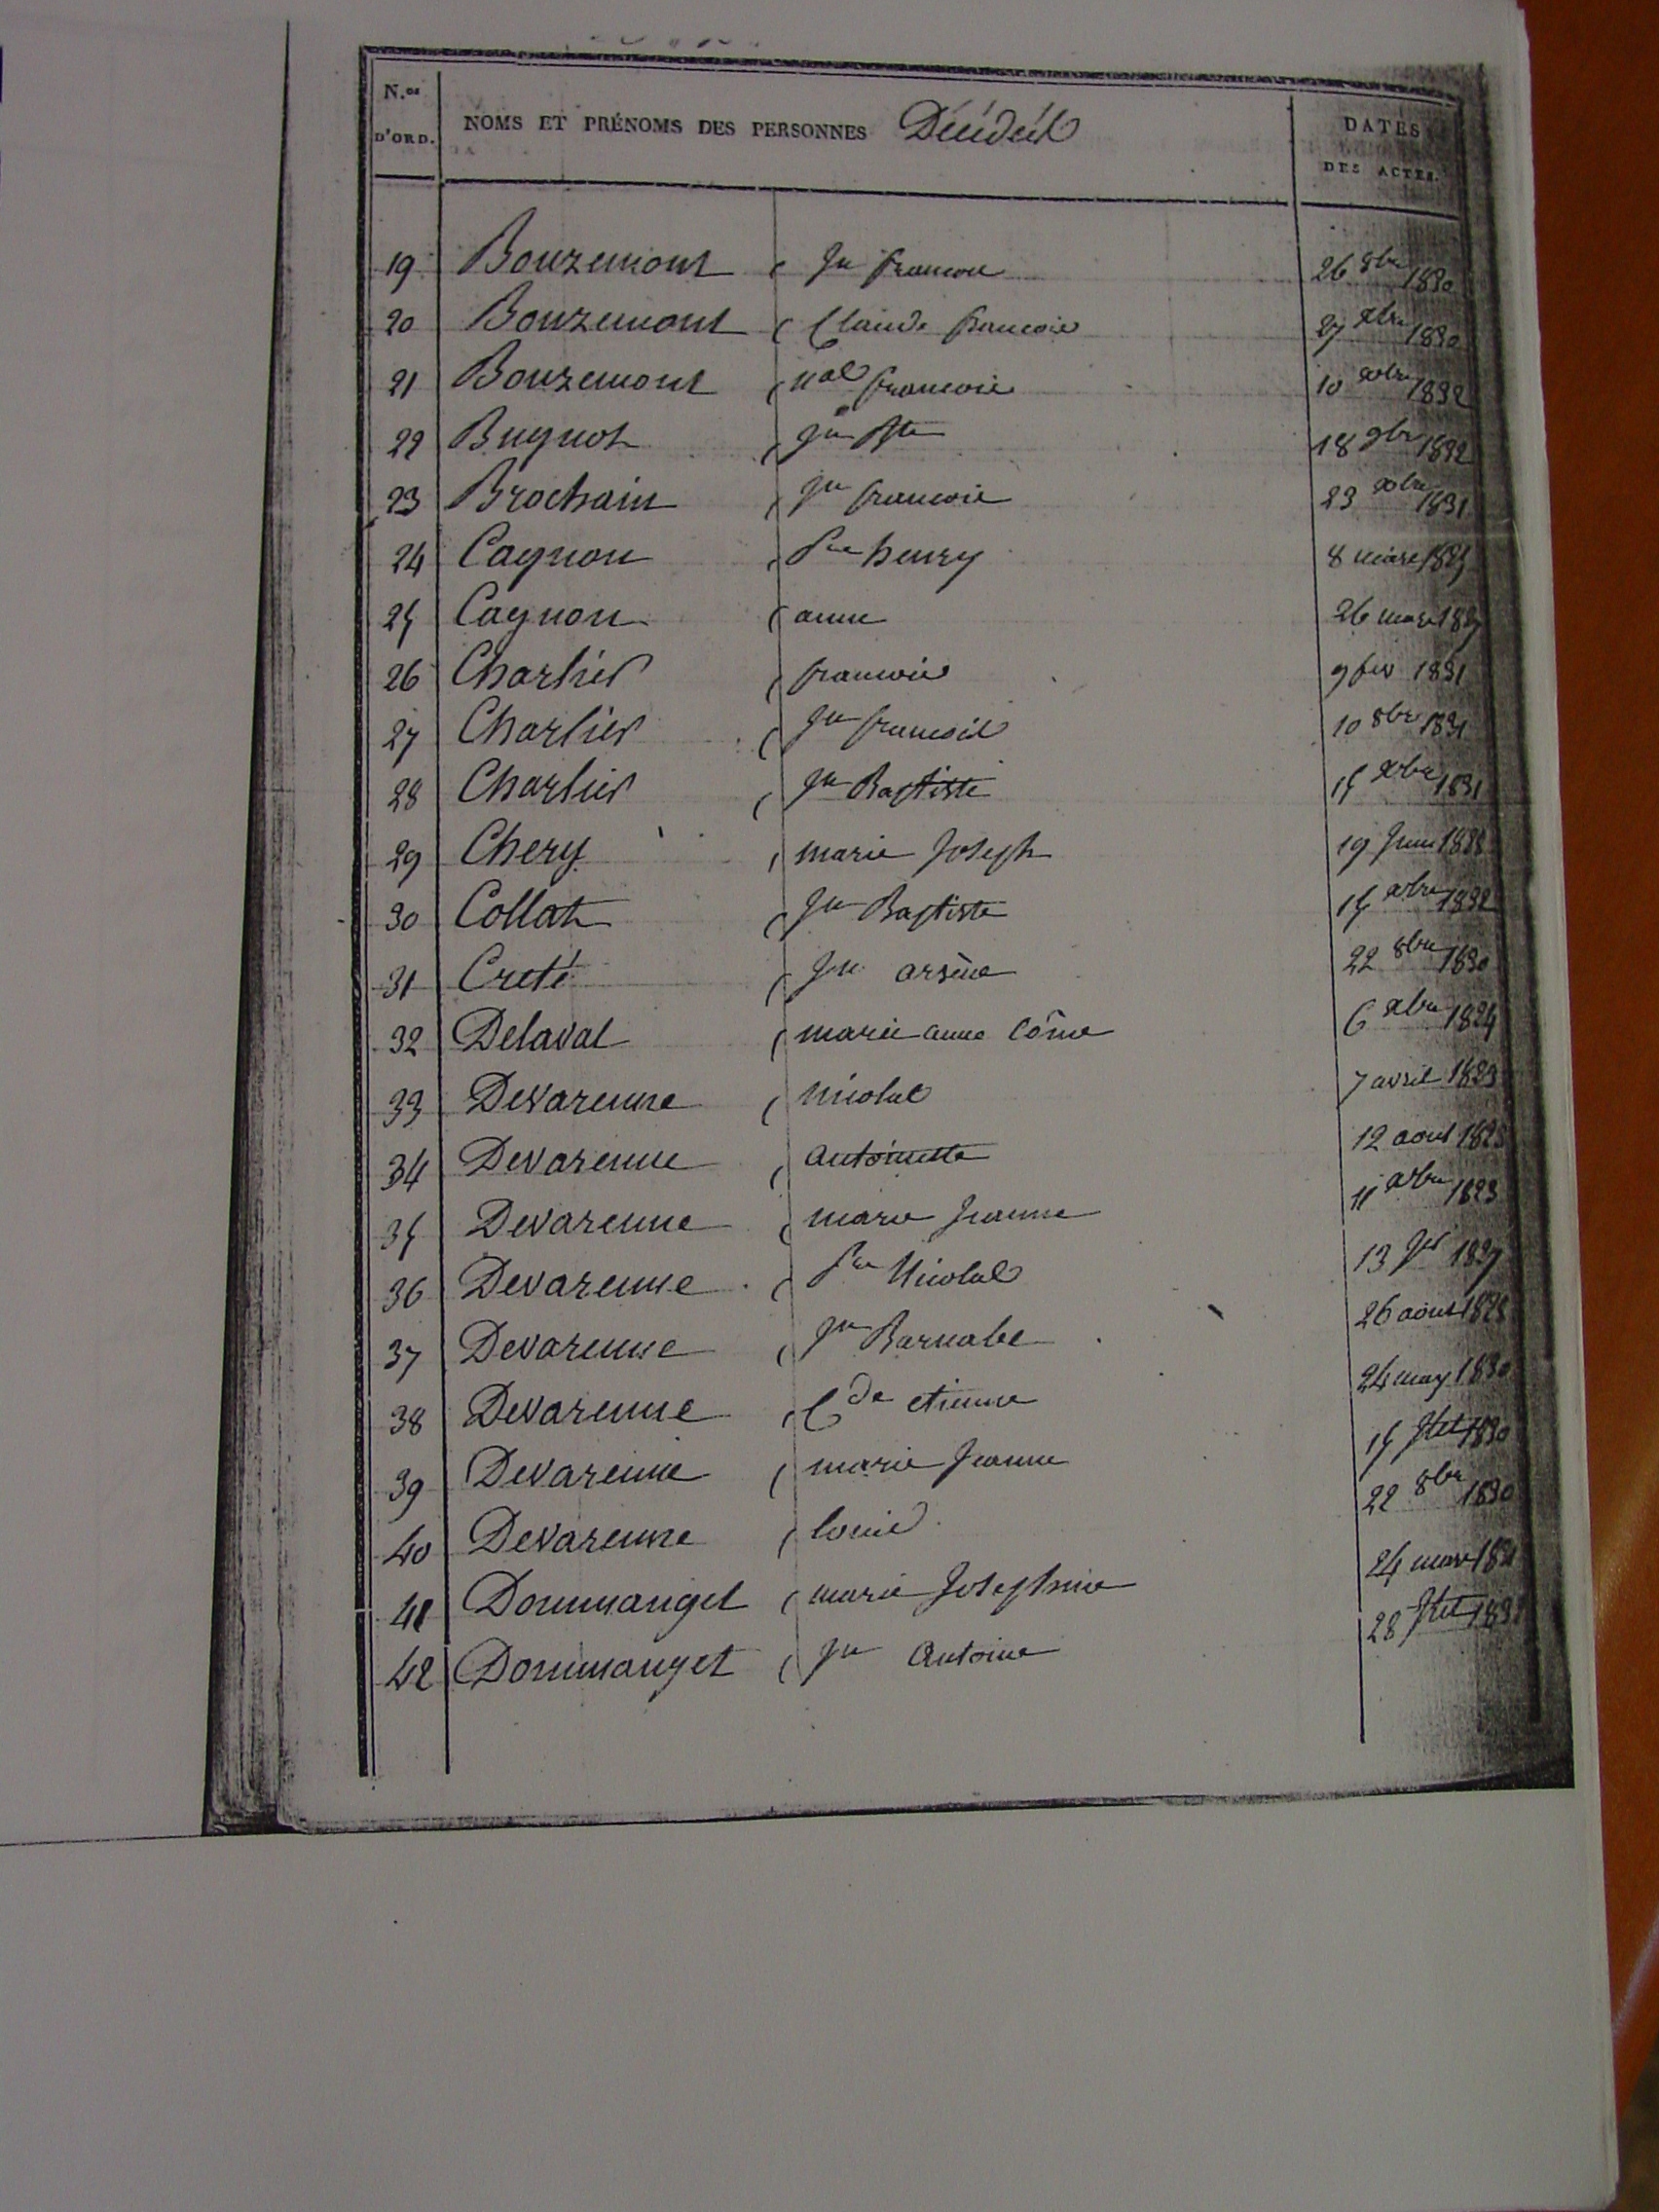 N.os D'ORD. NOMS ET PRÉNOMS DES PERSONNES Décédés DATES DES ACTES.
19 Bouzemont Jn francois 26 8bre 1830
20 Bouzemont Claude francois 27 xbre 1830
21 Bouzemont nal francois 10 xbre 1832
22 Bugnot Jn Bte 18 9bre 1832
23 Brochain Jn francois 23 xbre 1831
24 Cagnon Pre henry 8 mars
25 Cagnon anne 26 mars
26 Charlier francois 9 fev 1831
27 Charlier Jn francois 10 8bre 1831
28 Charlier Jn Baptiste 15 xbre 1831
29 Chery marie Joseph 19 Juin
30 Collat Jn Baptiste 15 xbre 1832
31 Creté Jn arsène 22 8bre 1830
32 Delaval marie anne Côme 6 xbre 1824
33 Devarenne nicolas 7 avril 1823
34 Devarenne antoinette 12 aout
35 Devarenne marie Jeanne 11 xbre 1823
36 Devarenne Pre Nicolas 13 1827
37 Devarenne Jn Barnabe 26 aout 1828
38 Devarenne Cde etienne 24 may 1830
39 Devarenne marie Jeanne 15 Jllet 1830
40 Devarenne louis 22 8bre 1830
41 Dommanget marie Josephine 24 mars
42 Dommanget Jn Antoine 28 Jllet